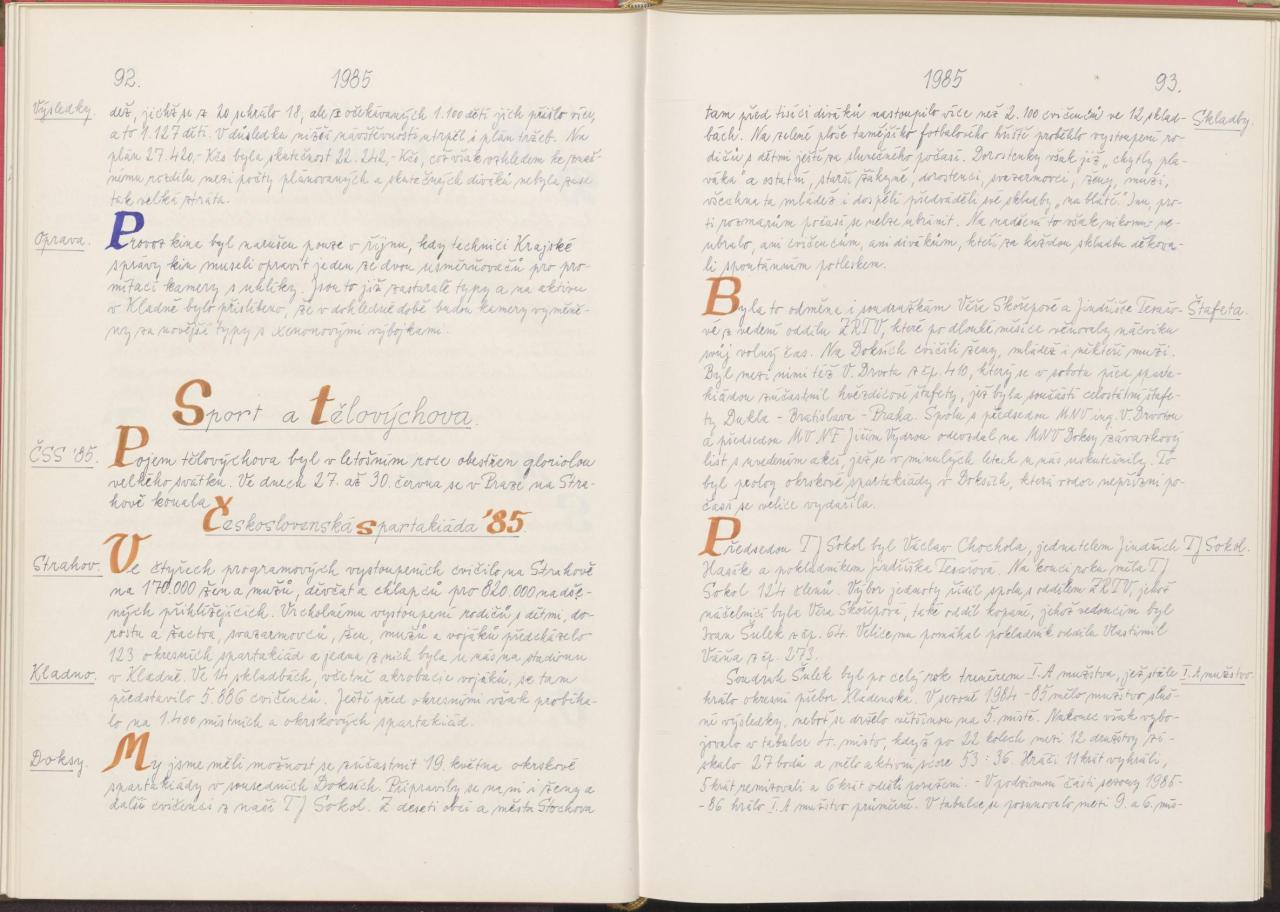 92. 1985
Výsledky.
děž, jichž se z 20 sehrálo 18, ale z očekávaných 1.100 dětí jich přišlo více,
a to 1.127 dětí. V důsledku nižší návštěvnosti utrpěl i plán tržeb. Na
plán 27.420,- Kčs byla skutečnost 22.242,- Kčs, což však vzhledem ke znač-
nému rozdílu mezi počty plánovaných a skutečných diváků nebyla zase
tak velká ztráta.
Oprava.
Provoz kina byl narušen pouze v říjnu, kdy technici Krajské
správy kin museli opravit jeden ze dvou usměrňovačů pro pro-
mítací kamery s uhlíky. Jsou to již zastaralé typy a na aktivu
v Kladně bylo přislíbeno, že v dohledné době budou kamery vyměně-
ny za novější typy s xenonovými výbojkami.
Sport a tělovýchova.
ČSS '85.
Pojem tělovýchova byl v letošním roce obestřen gloriolou
velkého svátku. Ve dnech 27. až 30. června se v Praze na Stra-
hově konala
Československá spartakiáda '85.
Strahov.
Ve čtyřech programových vystoupeních cvičilo na Strahově
na 170.000 žen a mužů, děvčat a chlapců pro 820.000 nadše-
ných přihlížejících. Vrcholnému vystoupení rodičů s dětmi, do-
rostu a žactva, svazarmovců, žen, mužů a vojáků předcházelo
123 okresních spartakiád a jedna z nich byla u nás na stadionu
Kladno.
v Kladně. Ve 14 skladbách, včetně akrobacie vojáků, se tam
představilo 5.886 cvičenců. Ještě před okresními však probíha-
lo na 1.400 místních a okrskových spartakiád.
Doksy.
My jsme měli možnost se zúčastnit 19. května okrskové
spartakiády v sousedních Doksích. Připravily se na ni i ženy a
další cvičenci z naší TJ Sokol. Z deseti obcí a města Stochova
1985 93.
tam před tisíci diváků nastoupilo více než 2.100 cvičenců ve 12 sklad-
Skladby.
bách. Na zelené ploše tamějšího fotbalového hřiště proběhlo vystoupení ro-
dičů s dětmi ještě za slunečného počasí. Dorostenky však již „chytly pla-
váka" a ostatní, starší žákyně, dorostenci, svazarmovci, ženy, muži,
všechna ta mládež i dospělí předváděli své skladby „na blátě". Inu, pro-
ti rozmarům počasí se nelze ubránit. Na nadšení to však nikomu ne-
ubralo, ani cvičencům, ani divákům, kteří za každou skladbu děkova-
li spontánním potleskem.
Byla to odměna i soudružkám Věře Skořepové a Jindřišce Tesařo-
Štafeta.
vé z vedení oddílu ZRTV, které po dlouhé měsíce věnovaly nácviku
svůj volný čas. Na Doksích cvičili ženy, mládež i někteří muži.
Byl mezi nimi též V. Drvota z čp. 410, který se v sobotu před sparta-
kiádou zúčastnil hvězdicové štafety, jež byla součástí celostátní štafe-
ty Dukla - Bratislava - Praha. Spolu s předsedou MNV ing. V. Drvotou
a předsedou MV NF Jiřím Vydrou odevzdal na MNV Doksy závazkový
list s uvedením akcí, jež se v minulých letech u nás uskutečnily. To
byl prolog okrskové spartakiády v Doksích, která vzdor nepřízni po-
časí se velice vydařila.
Předsedou TJ Sokol byl Václav Chochola, jednatelem Jindřich
TJ Sokol.
Hasík a pokladníkem Jindřiška Tesařová. Na konci roku měla TJ
Sokol 124 členů. Výbor jednoty řídil spolu s oddílem ZRTV, jehož
náčelnicí byla Věra Skořepová, také oddíl kopané, jehož vedoucím byl
Ivan Šulek z čp. 64. Velice mu pomáhal pokladník oddílu Vlastimil
Váňa z čp. 273.
Soudruh Šulek byl po celý rok trenérem I.A mužstva, jež stále
I.A mužstvo
hrálo okresní přebor Kladenska. V sezoně 1984-85 mělo mužstvo sluš-
né výsledky, neboť se drželo většinou na 5. místě. Nakonec však vybo-
jovalo v tabulce 4. místo, když po 22 kolech mezi 12 družstvy zí-
skalo 27 bodů a mělo aktivní score 53:36. Hráči 11krát vyhráli,
5krát remizovali a 6krát odešli poraženi. - V podzimní části sezony 1985-
-86 hrálo I.A mužstvo průměrně. V tabulce se posunovalo mezi 9. a 6. mís-